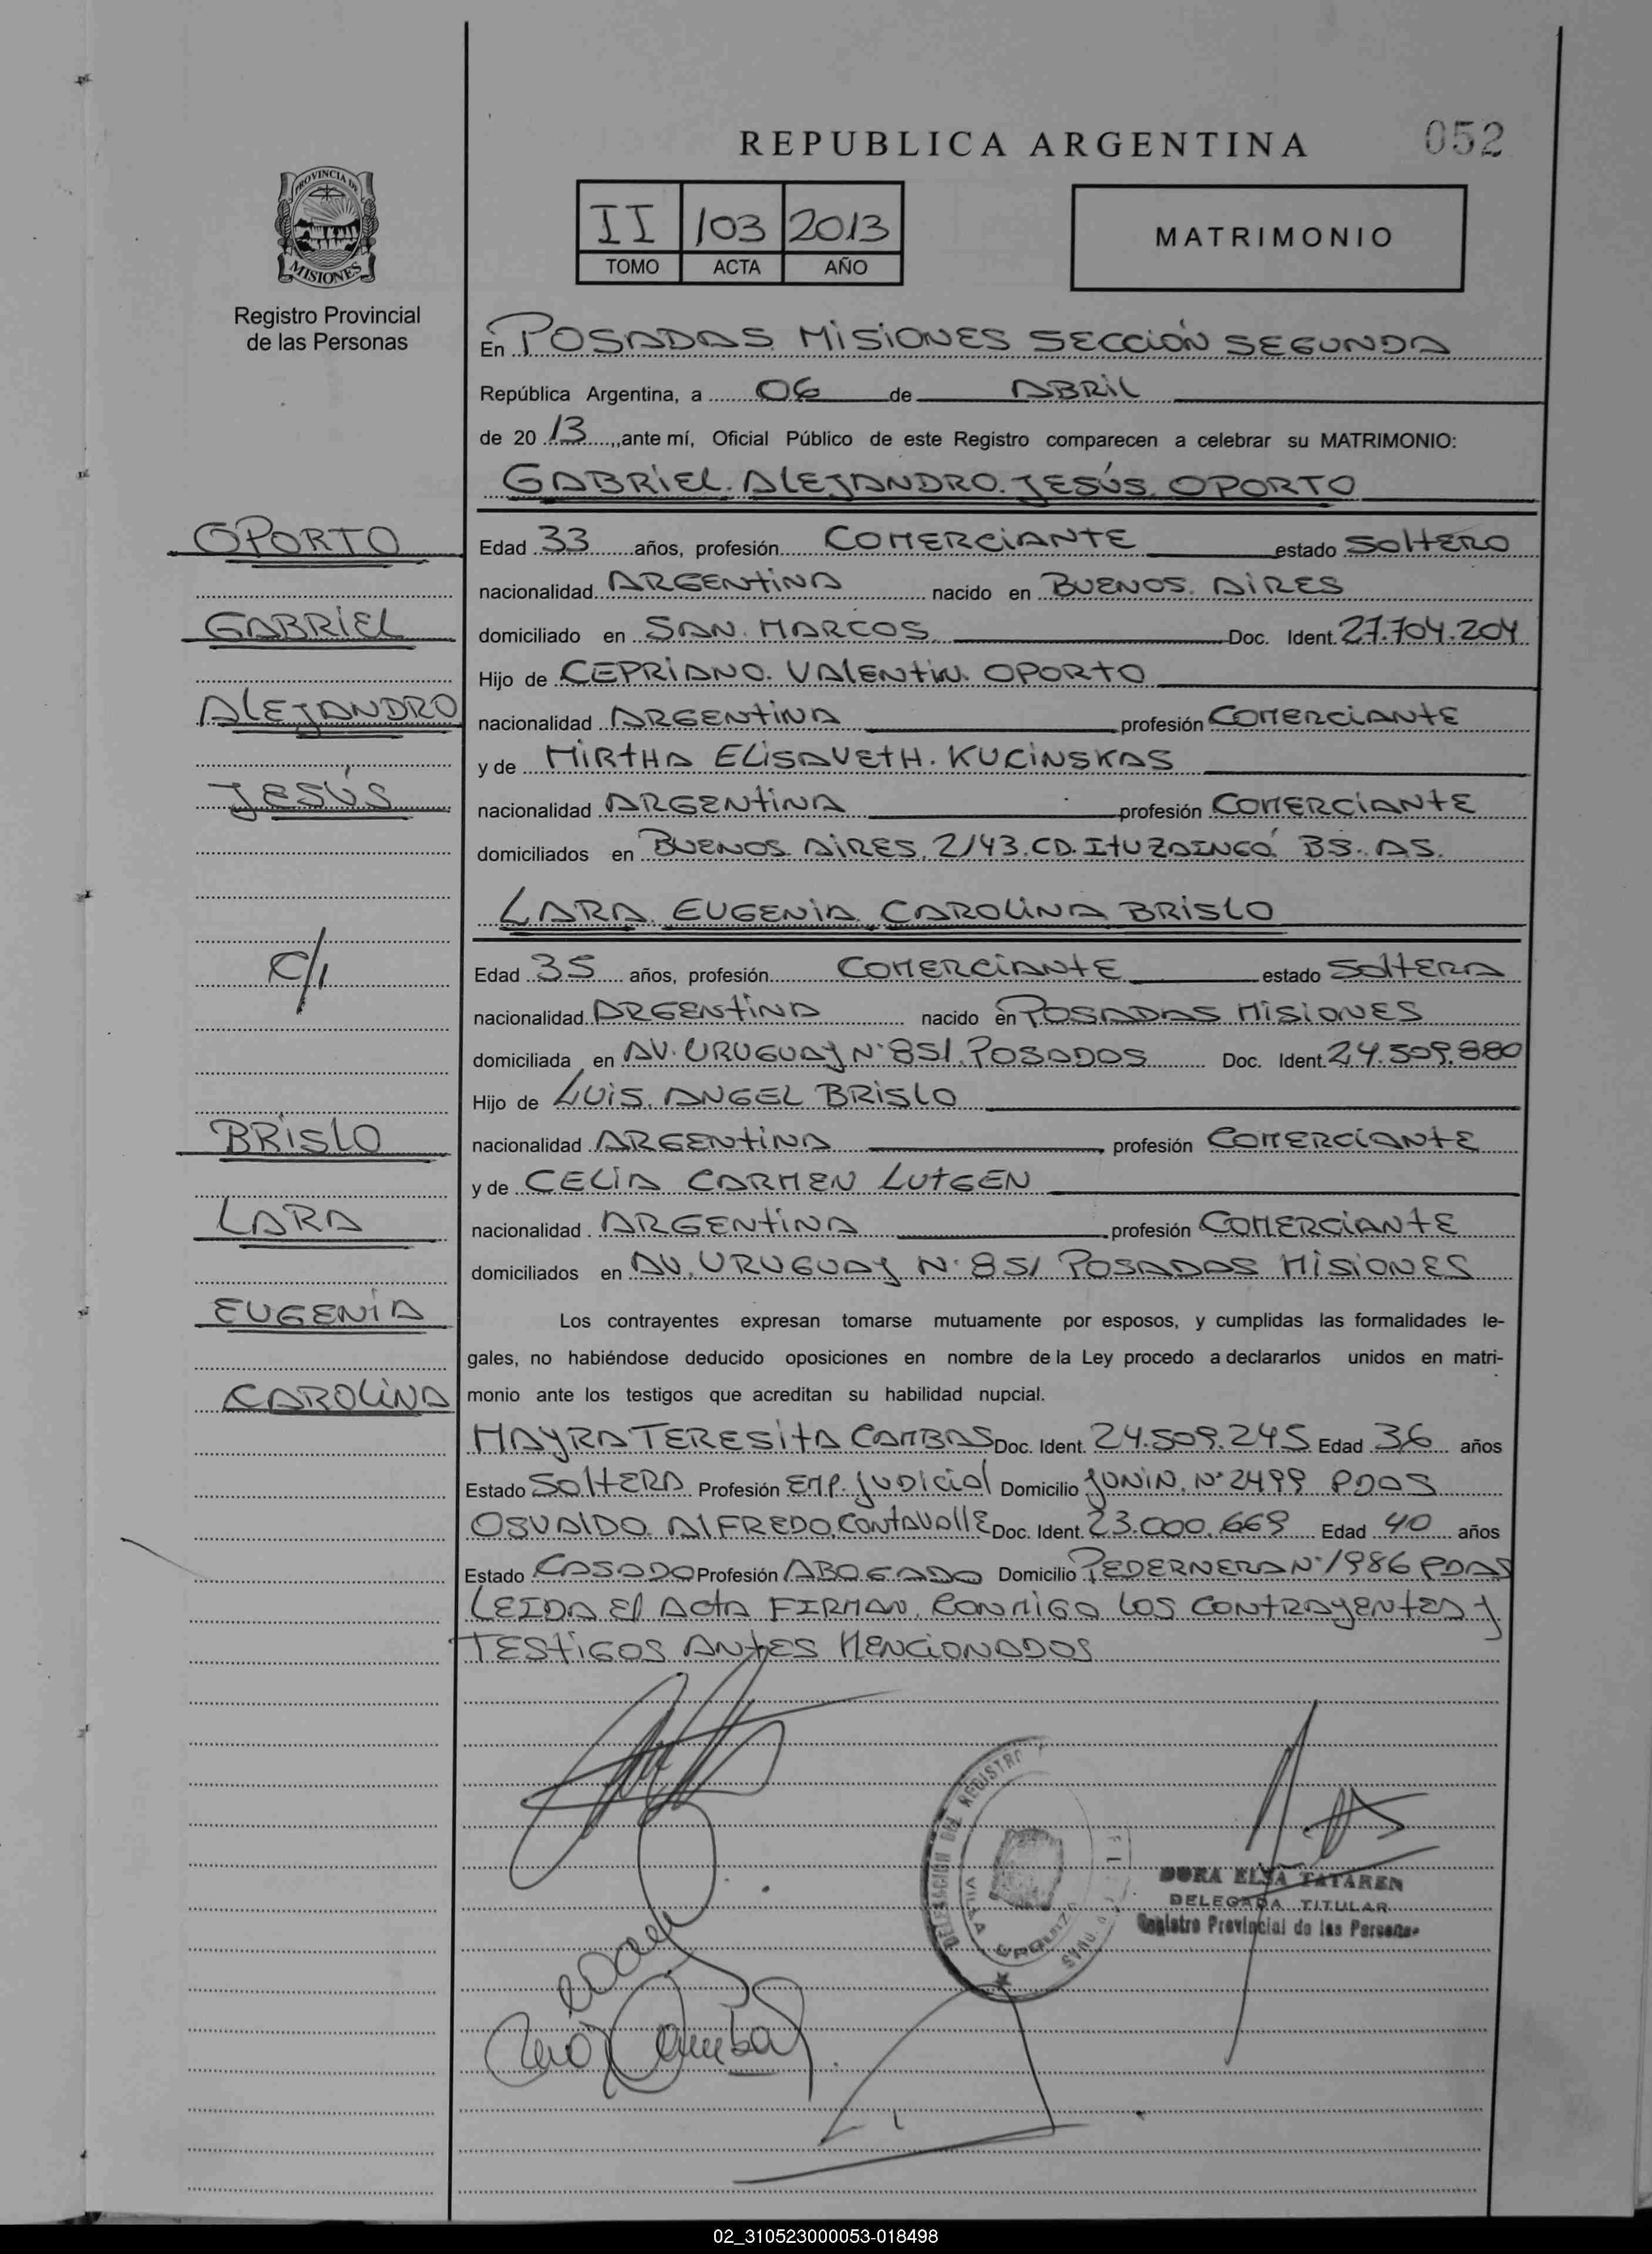 REPUBLICA ARGENTINA
052
PROVINCIA DE
MISIONES
Registro Provincial
de las Personas
II 103 2013
TOMO ACTA AÑO
MATRIMONIO
En POSADAS MISIONES SECCIÓN SEGUNDA
República Argentina, a 06 de ABRIL
de 20 13, ante mí, Oficial Público de este Registro comparecen a celebrar su MATRIMONIO:
GABRIEL ALEJANDRO JESÚS OPORTO
OPORTO
GABRIEL
ALEJANDRO
JESÚS
Edad 33 años, profesión COMERCIANTE estado SOLTERO
nacionalidad ARGENTINA nacido en BUENOS AIRES
domiciliado en SAN MARCOS Doc. Ident. 27.704.204
Hijo de CEPRIANO VALENTIN OPORTO
nacionalidad ARGENTINA profesión COMERCIANTE
y de MIRTHA ELISAVETH KUCINSKAS
nacionalidad ARGENTINA profesión COMERCIANTE
domiciliados en BUENOS AIRES 2143 CD. ITUZAINGÓ BS. AS.
LARA EUGENIA CAROLINA BRISLO
C/
BRISLO
LARA
EUGENIA
CAROLINA
Edad 35 años, profesión COMERCIANTE estado SOLTERA
nacionalidad ARGENTINA nacido en POSADAS MISIONES
domiciliada en AV. URUGUAY N° 851 POSADAS Doc. Ident. 24.509.880
Hijo de LUIS ANGEL BRISLO
nacionalidad ARGENTINA profesión COMERCIANTE
y de CELIA CARMEN LUTGEN
nacionalidad ARGENTINA profesión COMERCIANTE
domiciliados en AV. URUGUAY N° 851 POSADAS MISIONES
Los contrayentes expresan tomarse mutuamente por esposos, y cumplidas las formalidades le-
gales, no habiéndose deducido oposiciones en nombre de la Ley procedo a declararlos unidos en matri-
monio ante los testigos que acreditan su habilidad nupcial.
MAYRA TERESITA CAMBAS Doc. Ident. 24.509.245 Edad 36 años
Estado SOLTERA Profesión EMP. JUDICIAL Domicilio JUNIN N° 2499 PDAS
OSVALDO ALFREDO CONTAVALLE Doc. Ident. 23.000.669 Edad 40 años
Estado CASADO Profesión ABOGADO Domicilio PEDERNERA N° 1986 PDAS
LEIDA El ACTA FIRMAN CONMIGO LOS CONTRAYENTES y
TESTIGOS ANTES MENCIONADOS
DELEGACION DEL REGISTRO
VILLA URQUIZA
DORA ELSA TATAREN
DELEGADA TITULAR
Registro Provincial de las Personas
02_310523000053-018498